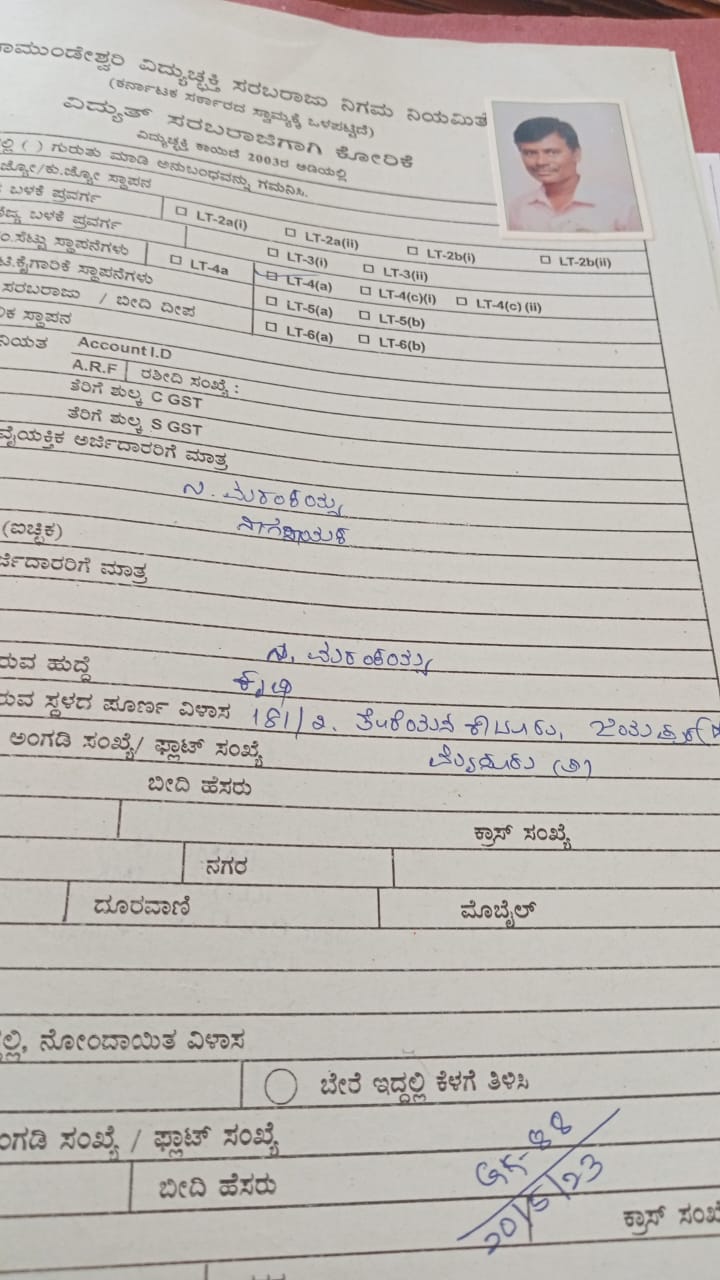 ಾಮುಂಡೇಶ್ವರಿ ವಿದ್ಯುಚ್ಛಕ್ತಿ ಸರಬರಾಜು ನಿಗಮ ನಿಯಮಿತ
(ಕರ್ನಾಟಕ ಸರ್ಕಾರದ ಸ್ವಾಮ್ಯಕ್ಕೆ ಒಳಪಟ್ಟಿದೆ)
ವಿದ್ಯುತ್ ಸರಬರಾಜಿಗಾಗಿ ಕೋರಿಕೆ
ವಿದ್ಯುಚ್ಛಕ್ತಿ ಕಾಯಿದೆ 2003ರ ಅಡಿಯಲ್ಲಿ
ಲ್ಲಿ ( ) ಗುರುತು ಮಾಡಿ ಅನುಬಂಧವನ್ನು ಗಮನಿಸಿ.
ಜ್ಯೋ/ಕು.ಜ್ಯೋ ಸ್ಥಾಪನ
ಬಳಕೆ ಪ್ರವರ್ಗ ☐ LT-2a(i) ☐ LT-2a(ii) ☐ LT-2b(i) ☐ LT-2b(ii)
ಬಳಕೆ ಪ್ರವರ್ಗ ☐ LT-3(i) ☐ LT-3(ii)
ಂ.ಸೆಟ್ಟು ಸ್ಥಾಪನೆಗಳು ☐ LT-4a ☐ LT-4(a) ☐ LT-4(c)(i) ☐ LT-4(c) (ii)
ಟಿ.ಕೈಗಾರಿಕೆ ಸ್ಥಾಪನೆಗಳು ☐ LT-5(a) ☐ LT-5(b)
ಸರಬರಾಜು / ಬೀದಿ ದೀಪ ☐ LT-6(a) ☐ LT-6(b)
ಿಕ ಸ್ಥಾಪನ
ನಿಯತ Account I.D
A.R.F ರಶೀದಿ ಸಂಖ್ಯೆ :
ತೆರಿಗೆ ಶುಲ್ಕ C GST
ತೆರಿಗೆ ಶುಲ್ಕ S GST
ವೈಯಕ್ತಿಕ ಅರ್ಜಿದಾರರಿಗೆ ಮಾತ್ರ
(ಐಚ್ಛಿಕ)
ರ್ಜಿದಾರರಿಗೆ ಮಾತ್ರ
ರುವ ಹುದ್ದೆ
ಕೃಷಿ
ರುವ ಸ್ಥಳದ ಪೂರ್ಣ ವಿಳಾಸ 181/2.
ಅಂಗಡಿ ಸಂಖ್ಯೆ/ ಫ್ಲಾಟ್ ಸಂಖ್ಯೆ ಮೈಸೂರು (ತಾ)
ಬೀದಿ ಹೆಸರು
ಕ್ರಾಸ್ ಸಂಖ್ಯೆ
ನಗರ
ದೂರವಾಣಿ ಮೊಬೈಲ್
ಲ್ಲಿ, ನೋಂದಾಯಿತ ವಿಳಾಸ
ಬೇರೆ ಇದ್ದಲ್ಲಿ ಕೆಳಗೆ ತಿಳಿಸಿ
ಂಗಡಿ ಸಂಖ್ಯೆ / ಫ್ಲಾಟ್ ಸಂಖ್ಯೆ
ಬೀದಿ ಹೆಸರು 20/5/23
ಕ್ರಾಸ್ ಸಂಖ್ಯೆ